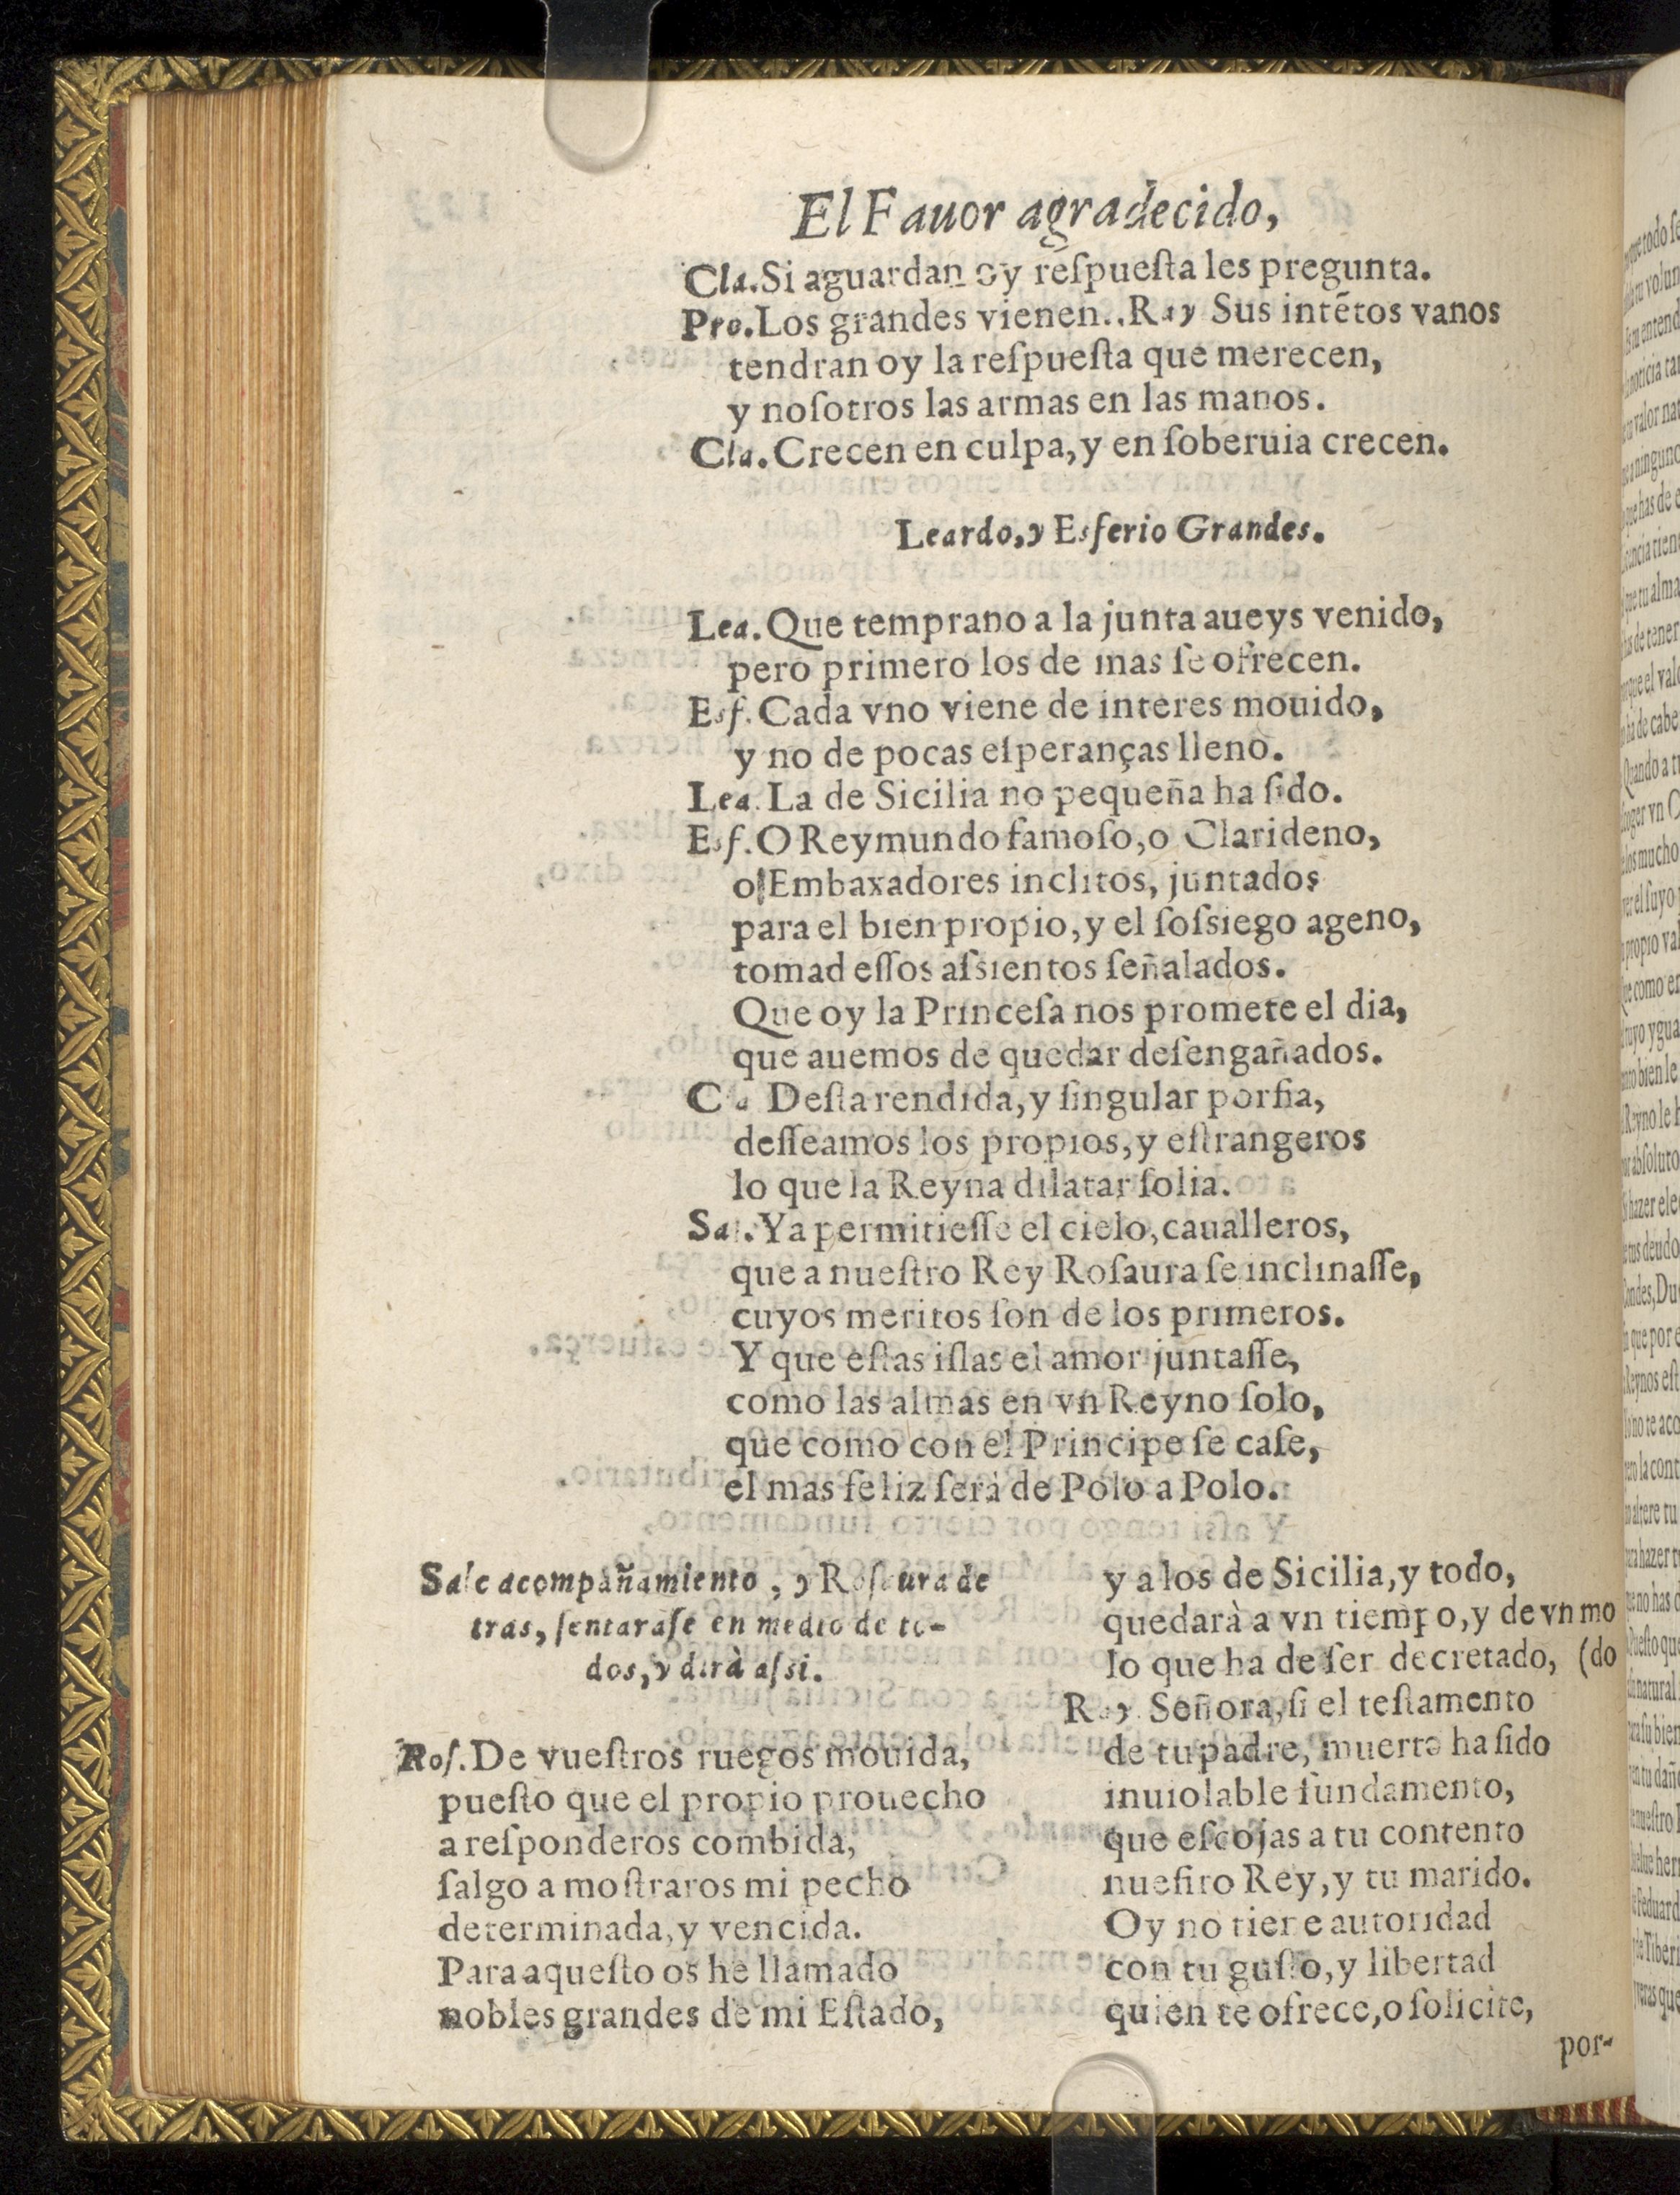 El Fauor agradecido,
Cla. Si aguardan oy respuesta les pregunta.
Pro. Los grandes vienen.. Ray Sus intẽtos vanos
tendran oy la respuesta que merecen,
y nosotros las armas en las manos.
Cla. Crecen en culpa, y en soberuia crecen.
Leardo, y Esferio Grandes.
Lea. Que temprano a la junta aueys venido,
pero primero los de mas se ofrecen.
Esf. Cada vno viene de interes mouido,
y no de pocas esperanças lleno.
Lea. La de Sicilia no pequeña ha sido.
Esf. O Reymundo famoso, o Clarideno,
o! Embaxadores inclitos, juntados
para el bien propio, y el sossiego ageno,
tomad essos assientos señalados.
Que oy la Princesa nos promete el dia,
que auemos de quedar desengañados.
Cla Desta rendida, y singular porfia,
desseamos los propios, y estrangeros
lo que la Reyna dilatar solia.
Sal. Ya permitiesse el cielo, caualleros,
que a nuestro Rey Rosaura se inclinasse,
cuyos meritos son de los primeros.
Y que estas islas el amor juntasse,
como las almas en vn Reyno solo,
que como con el Principe se case,
el mas feliz serà de Polo a Polo.
Sale acompañamiento, y Rosaura de
tras, sentarase en medio de to-
dos, y dirà assi.
Ros. De vuestros ruegos mouida,
puesto que el propio prouecho
a responderos combida,
salgo a mostraros mi pecho
determinada, y vencida.
Para aquesto os he llamado
nobles grandes de mi Estado,
y a los de Sicilia, y todo,
quedarà a vn tiempo, y de vn mo
lo que ha de ser decretado, (do
Ray. Señora, si el testamento
de tu padre, muerto ha sido
inuiolable fundamento,
que escojas a tu contento
nuestro Rey, y tu marido.
Oy no tiene autoridad
con tu gusto, y libertad
quien te ofrece, o solicite,
por-